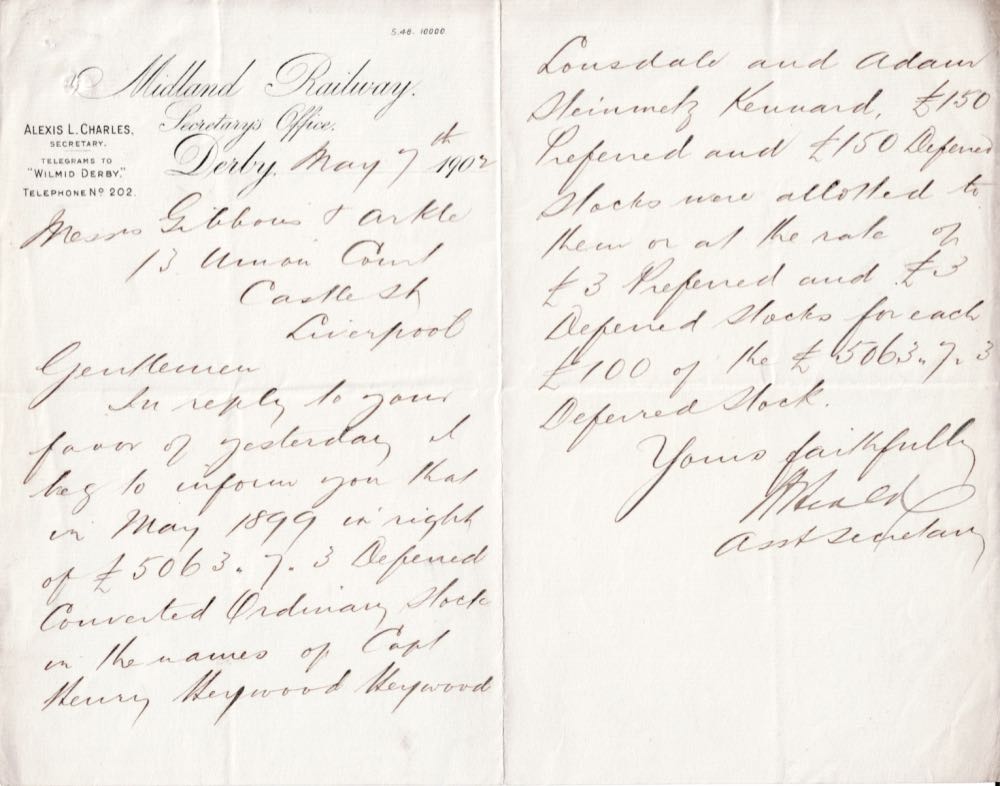 5.48. 10000.
Midland Railway.
Secretary's Office,
ALEXIS L. CHARLES,
SECRETARY.
TELEGRAMS TO
"WILMID DERBY."
TELEPHONE Nº 202.
Derby, May 7th 1902
Messrs Gibbons & Arkle
13 Union Court
Castle St
Liverpool
Gentlemen
In reply to your
favor of yesterday I
beg to inform you that
in May 1899 in right
of £5063. 7. 3 Deferred
Converted Ordinary Stock
in the names of Capt
Henry Heywood Heywood
Lonsdale and Adam
Steinmetz Kennard, £150
Preferred and £150 Deferred
stocks were allotted to
them or at the rate of
£3 Preferred and £3
Deferred stocks for each
£100 of the £5063. 7. 3
Deferred Stock.
Yours faithfully
Asst Secretary